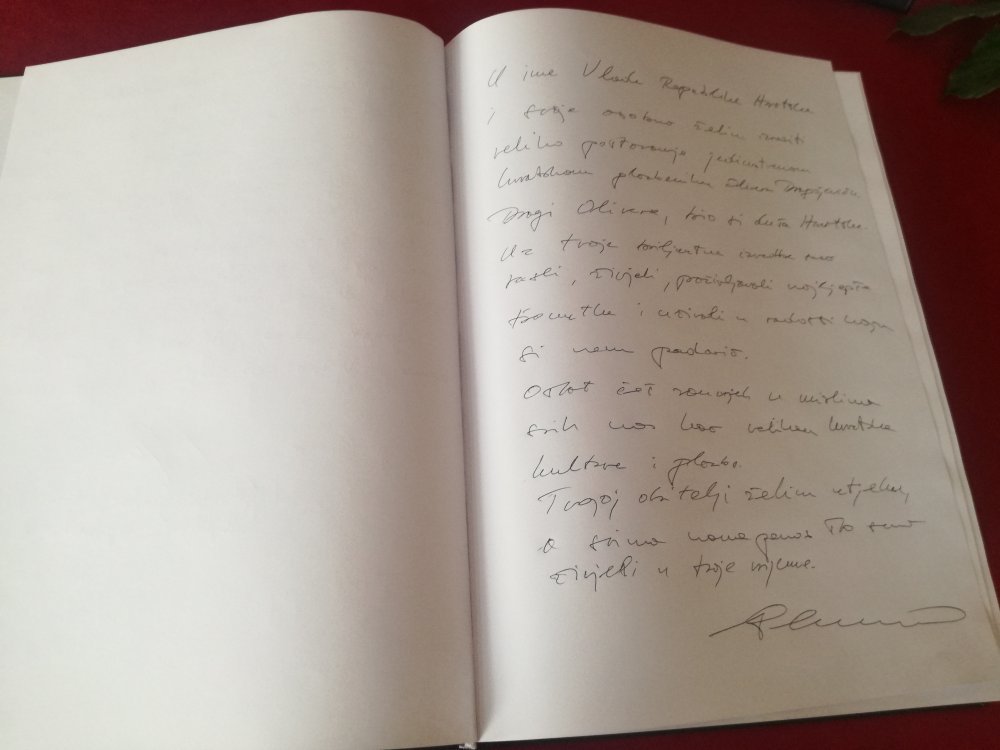 U ime Vlade Republike Hrvatske
i svoje osobno želim izraziti
veliko poštovanje jedinstvenom
hrvatskom glazbeniku Oliveru Dragojeviću.
Dragi Olivere, bio si duša Hrvatske.
Uz tvoje briljantne izvedbe smo
rasli, živjeli, proživljavali najljepše
trenutke i uživali u radosti koju
si nam podario.
Ostat ćeš zauvijek u mislima
svih nas kao velikan hrvatske
kulture i glazbe.
Tvojoj obitelji želim utjehu,
a svima nama ponos što smo
živjeli u tvoje vrijeme.